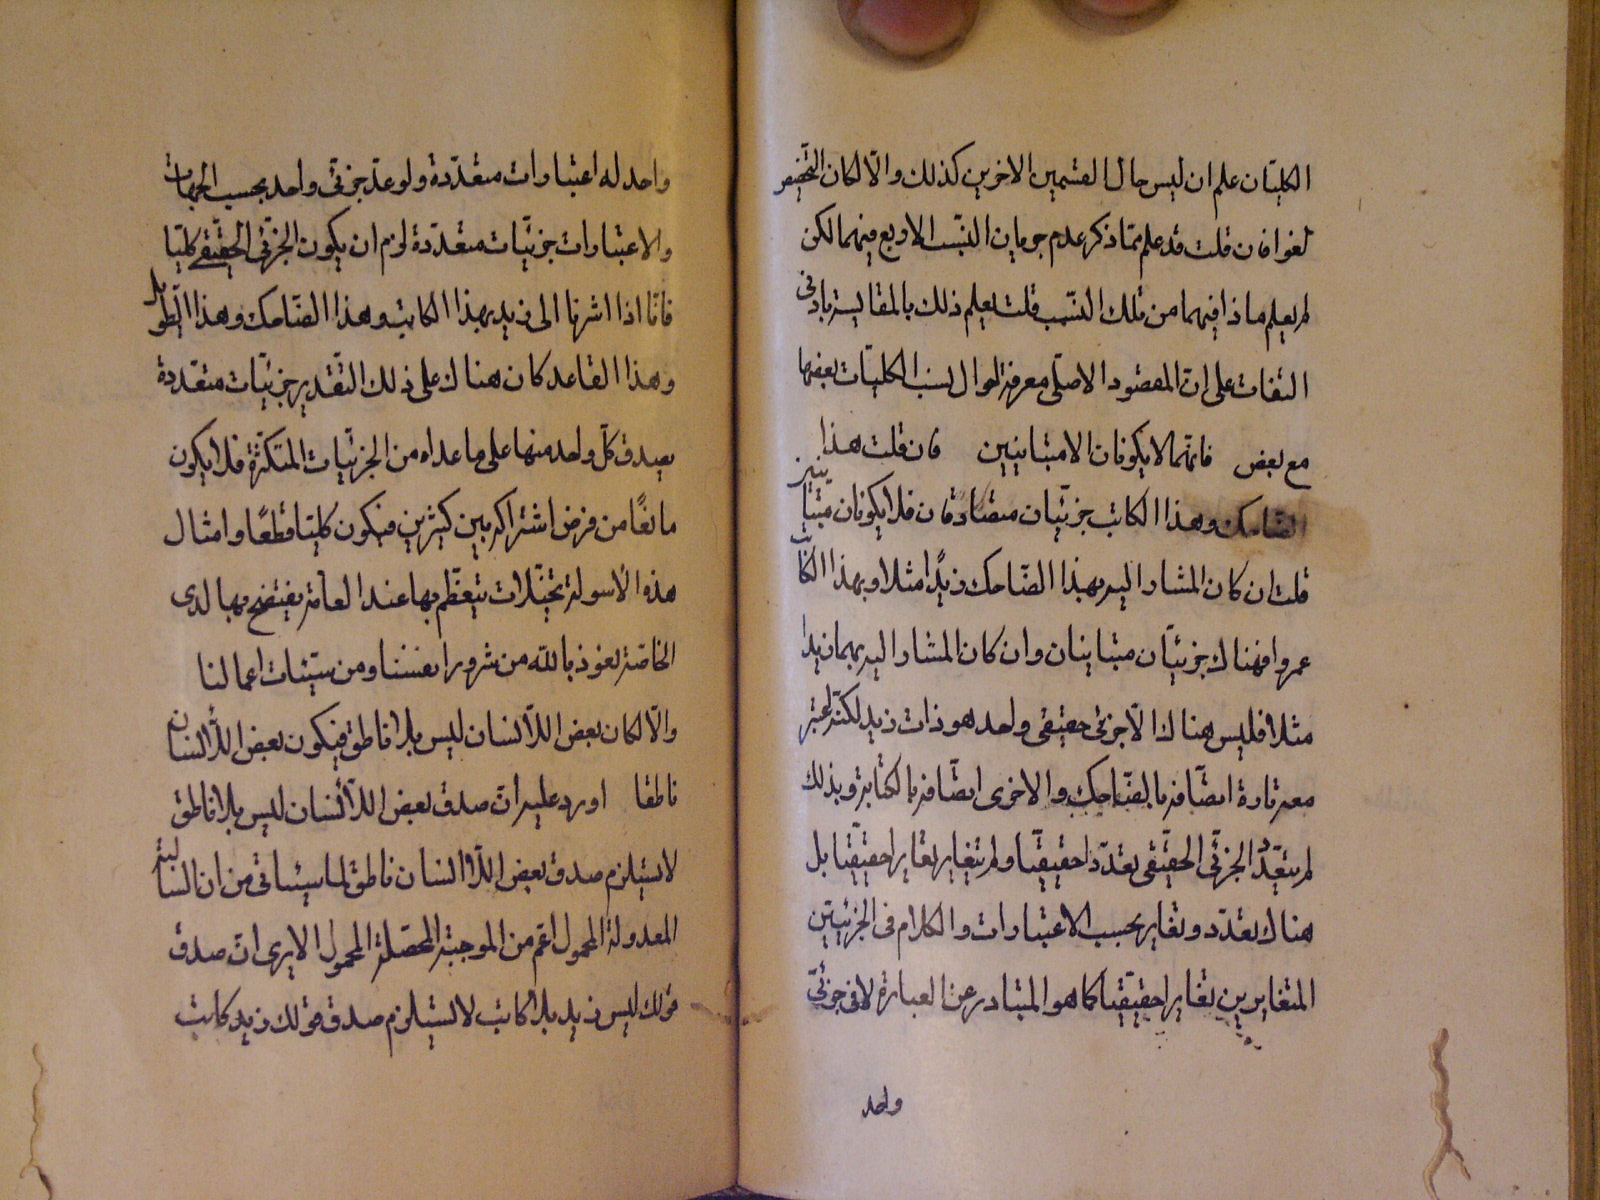 الكليتان علم ان ليس حال القسمين الاخرين كذلك والّا لكان التخصيص
لغوا فان قلت قد علم ممّا ذكر عدم جريان النسب الاربع فيهما لكن
لم يعلم ماذا فيهما من تلك النسب قلت يعلم ذلك بالمقايسة بادنى
التفات على انّ المقصود الاصلى معرفة احوال نسب الكليّات بعضها
مع بعض فانهما لا يكونان الا متباينين فان قلت هذا
الضاحك وهذا الكاتب جزئيّان متصادقان فلا يكونان متباينين
قلت ان كان المشار اليه بهذا الضّاحك زيدًا مثلا وبهذا الكاتب
عمروا فهناك جزئيّان متباينان وان كان المشار اليه بهما زيدا
مثلا فليس هناك الّا جزئى حقيقى واحد هو ذات زيد لكنّه اعتبر
معه تارة اتصّافه بالضّاحك والاخرى اتصّافه بالكتابة وبذلك
لم يتعدّد الجزئى الحقيقى تعدّدا حقيقيّا ولم يتغاير تغايرا حقيقيّا بل
هناك تعدّد وتغاير بحسب الاعتبارات والكلام فى الجزئيين
المتغايرين تغايرا حقيقيّا كما هو المتبادر عن العبارة لا فى جزئىّ
واحد
واحد له اعتبارات متعدّدة ولو عدّ جزئى واحد بحسب الجهات
والاعتبارات جزئيّات متعدّدة لزم ان يكون الجزئى الحقيقى كليّا
فانّا اذا اشرنا الى زيد بهذا الكاتب وهذا الضّاحك وهذا الطّويل
وهذا القاعد كان هناك على ذلك التقدير جزئيّات متعدّدة
يصدق كلّ واحد منها على ما عداه من الجزئيّات المتكثّرة فلا يكون
مانعًا من فرض اشتراكه بين كثيرين فيكون كليّا قطعًا وامثال
هذه الاسولة تخيّلات يتعظّم بها عند العامّة يفتضح بها لدى
الخاصّة نعوذ بالله من شرور انفسنا ومن سيّئات اعمالنا
والّا لكان بعض اللاّانسان ليس بلا ناطق فيكون بعض اللاّانسان
ناطقا اورد عليه انّ صدق بعض اللاّانسان ليس بلا ناطق
لا يستلزم صدق بعض اللاّانسان ناطق لما سيئاتى من ان السّالبة
المعدولة المحمول اعم من الموجبة المحصّلة المحمول الا يرى انّ صدق
قولك ليس زيد بلا كاتب لا يستلزم صدق قولك زيد كاتب